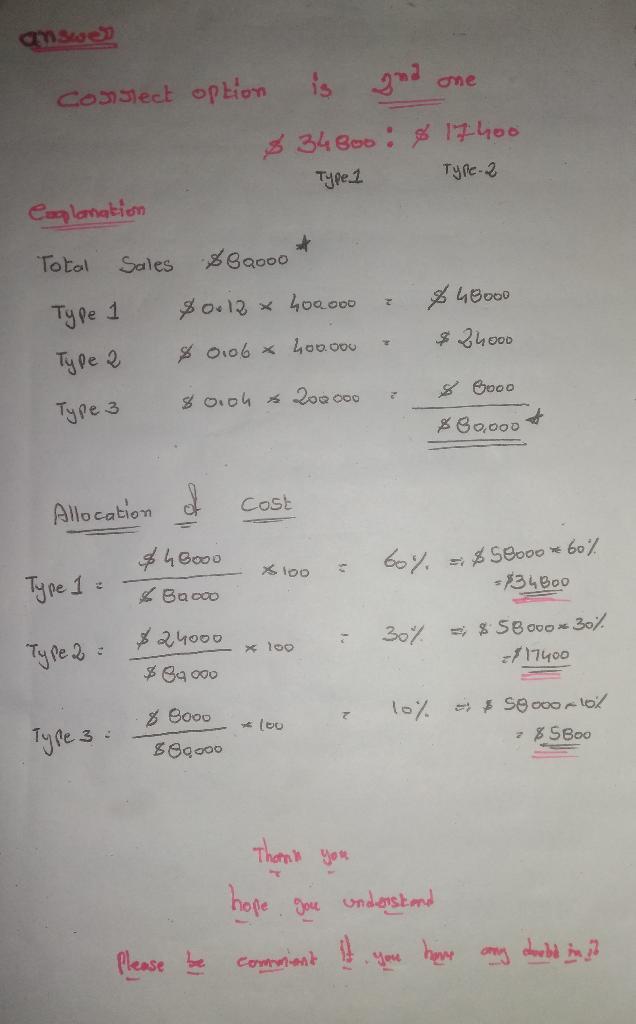 answer
Correct option is 2nd one
$ 34800 : $ 17400
Type 1 Type-2
Explanation
Total Sales $80000 *
Type 1 $0.12 × 400000 = $48000
Type 2 $0.06 × 400.000 = $24000
Type 3 $0.04 × 200000 = $8000
$80,000 *
Allocation of Cost
Type 1 = $48000 / $80000 × 100 = 60% =) $58000 × 60%
= $34800
Type 2 = $24000 / $80000 × 100 = 30% =) $58000 × 30%
= $17400
Type 3 = $8000 / $80,000 × 100 = 10% =) $58000 × 10%
= $5800
Thank you
hope you understand
Please be comment if you have any doubt in it